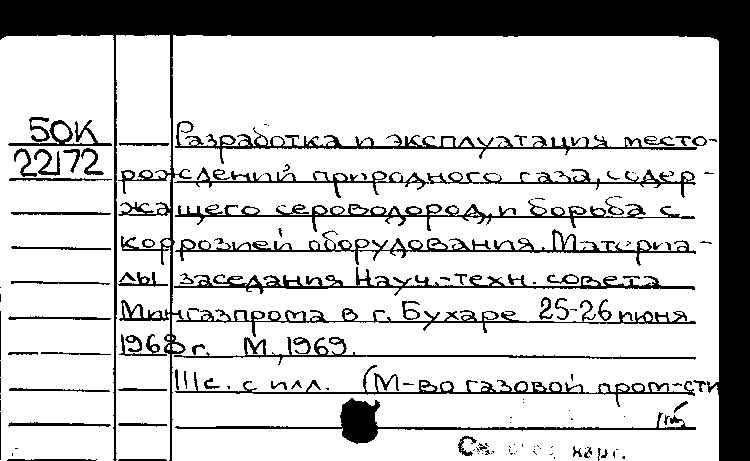 50К
22172
Разработка и эксплуатация место-
рождений природного газа, содер-
жащего сероводород, и борьба с
коррозией оборудования. Материа-
лы заседания Науч.-техн. совета
Мингазпрома в г. Бухаре 25-26 июня
1968 г. М., 1969.
111 с. с илл. (М-во газовой пром-сти
См. след. карт.